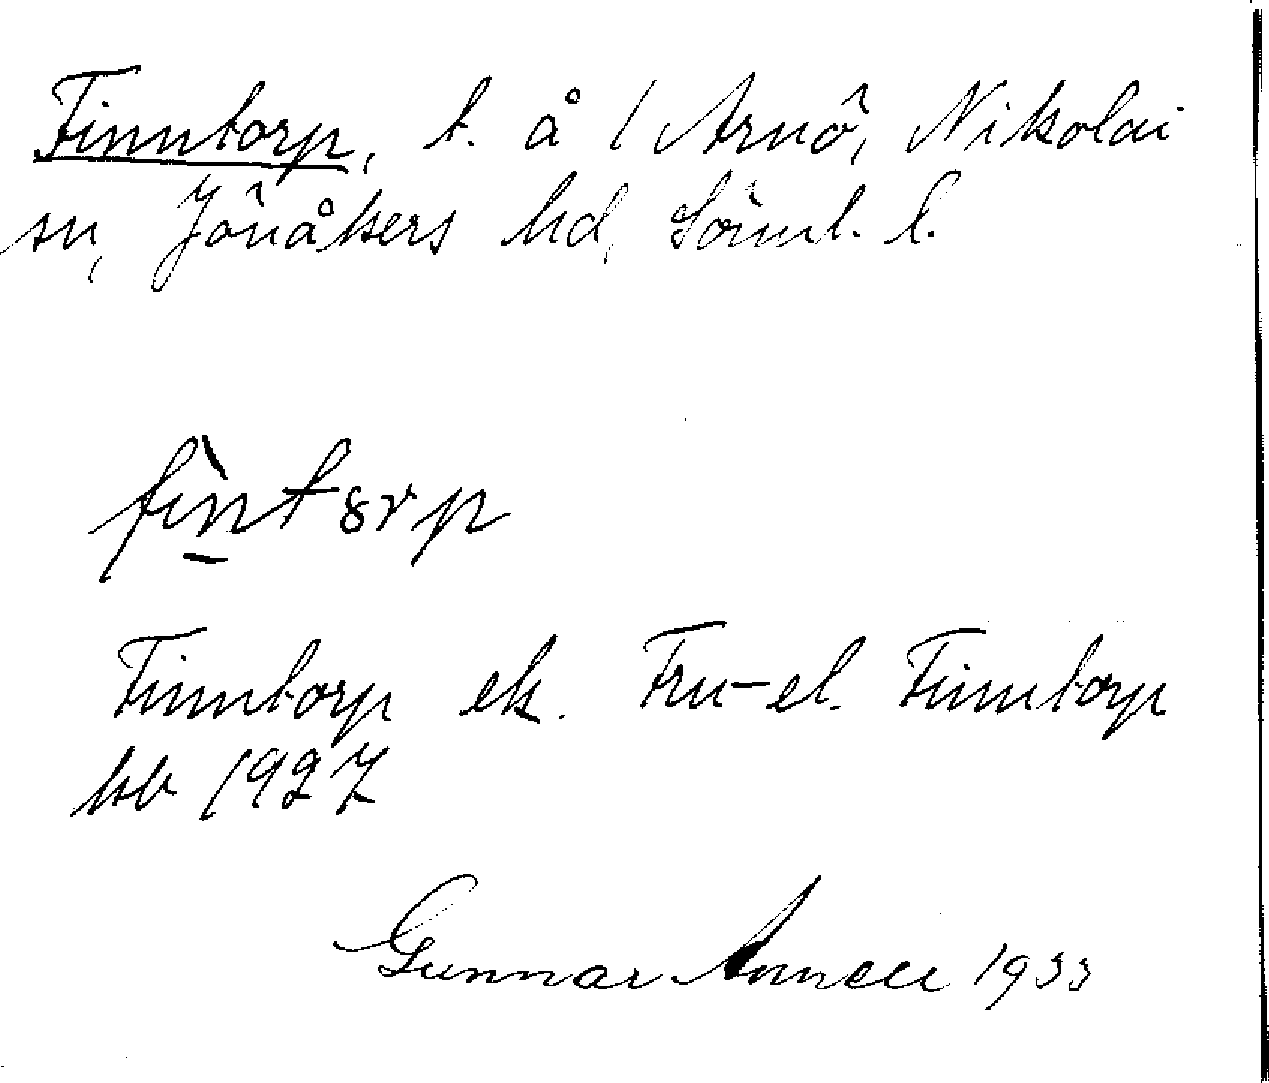 Finntorp, t. å 1 Arnö, Nikolai
sn, Jönåkers hd, Söml. l.
fìn̲tȣrp
Finntorp ek. Fru- el. Finntorp
kb 1927
Gunnar Annell 1933